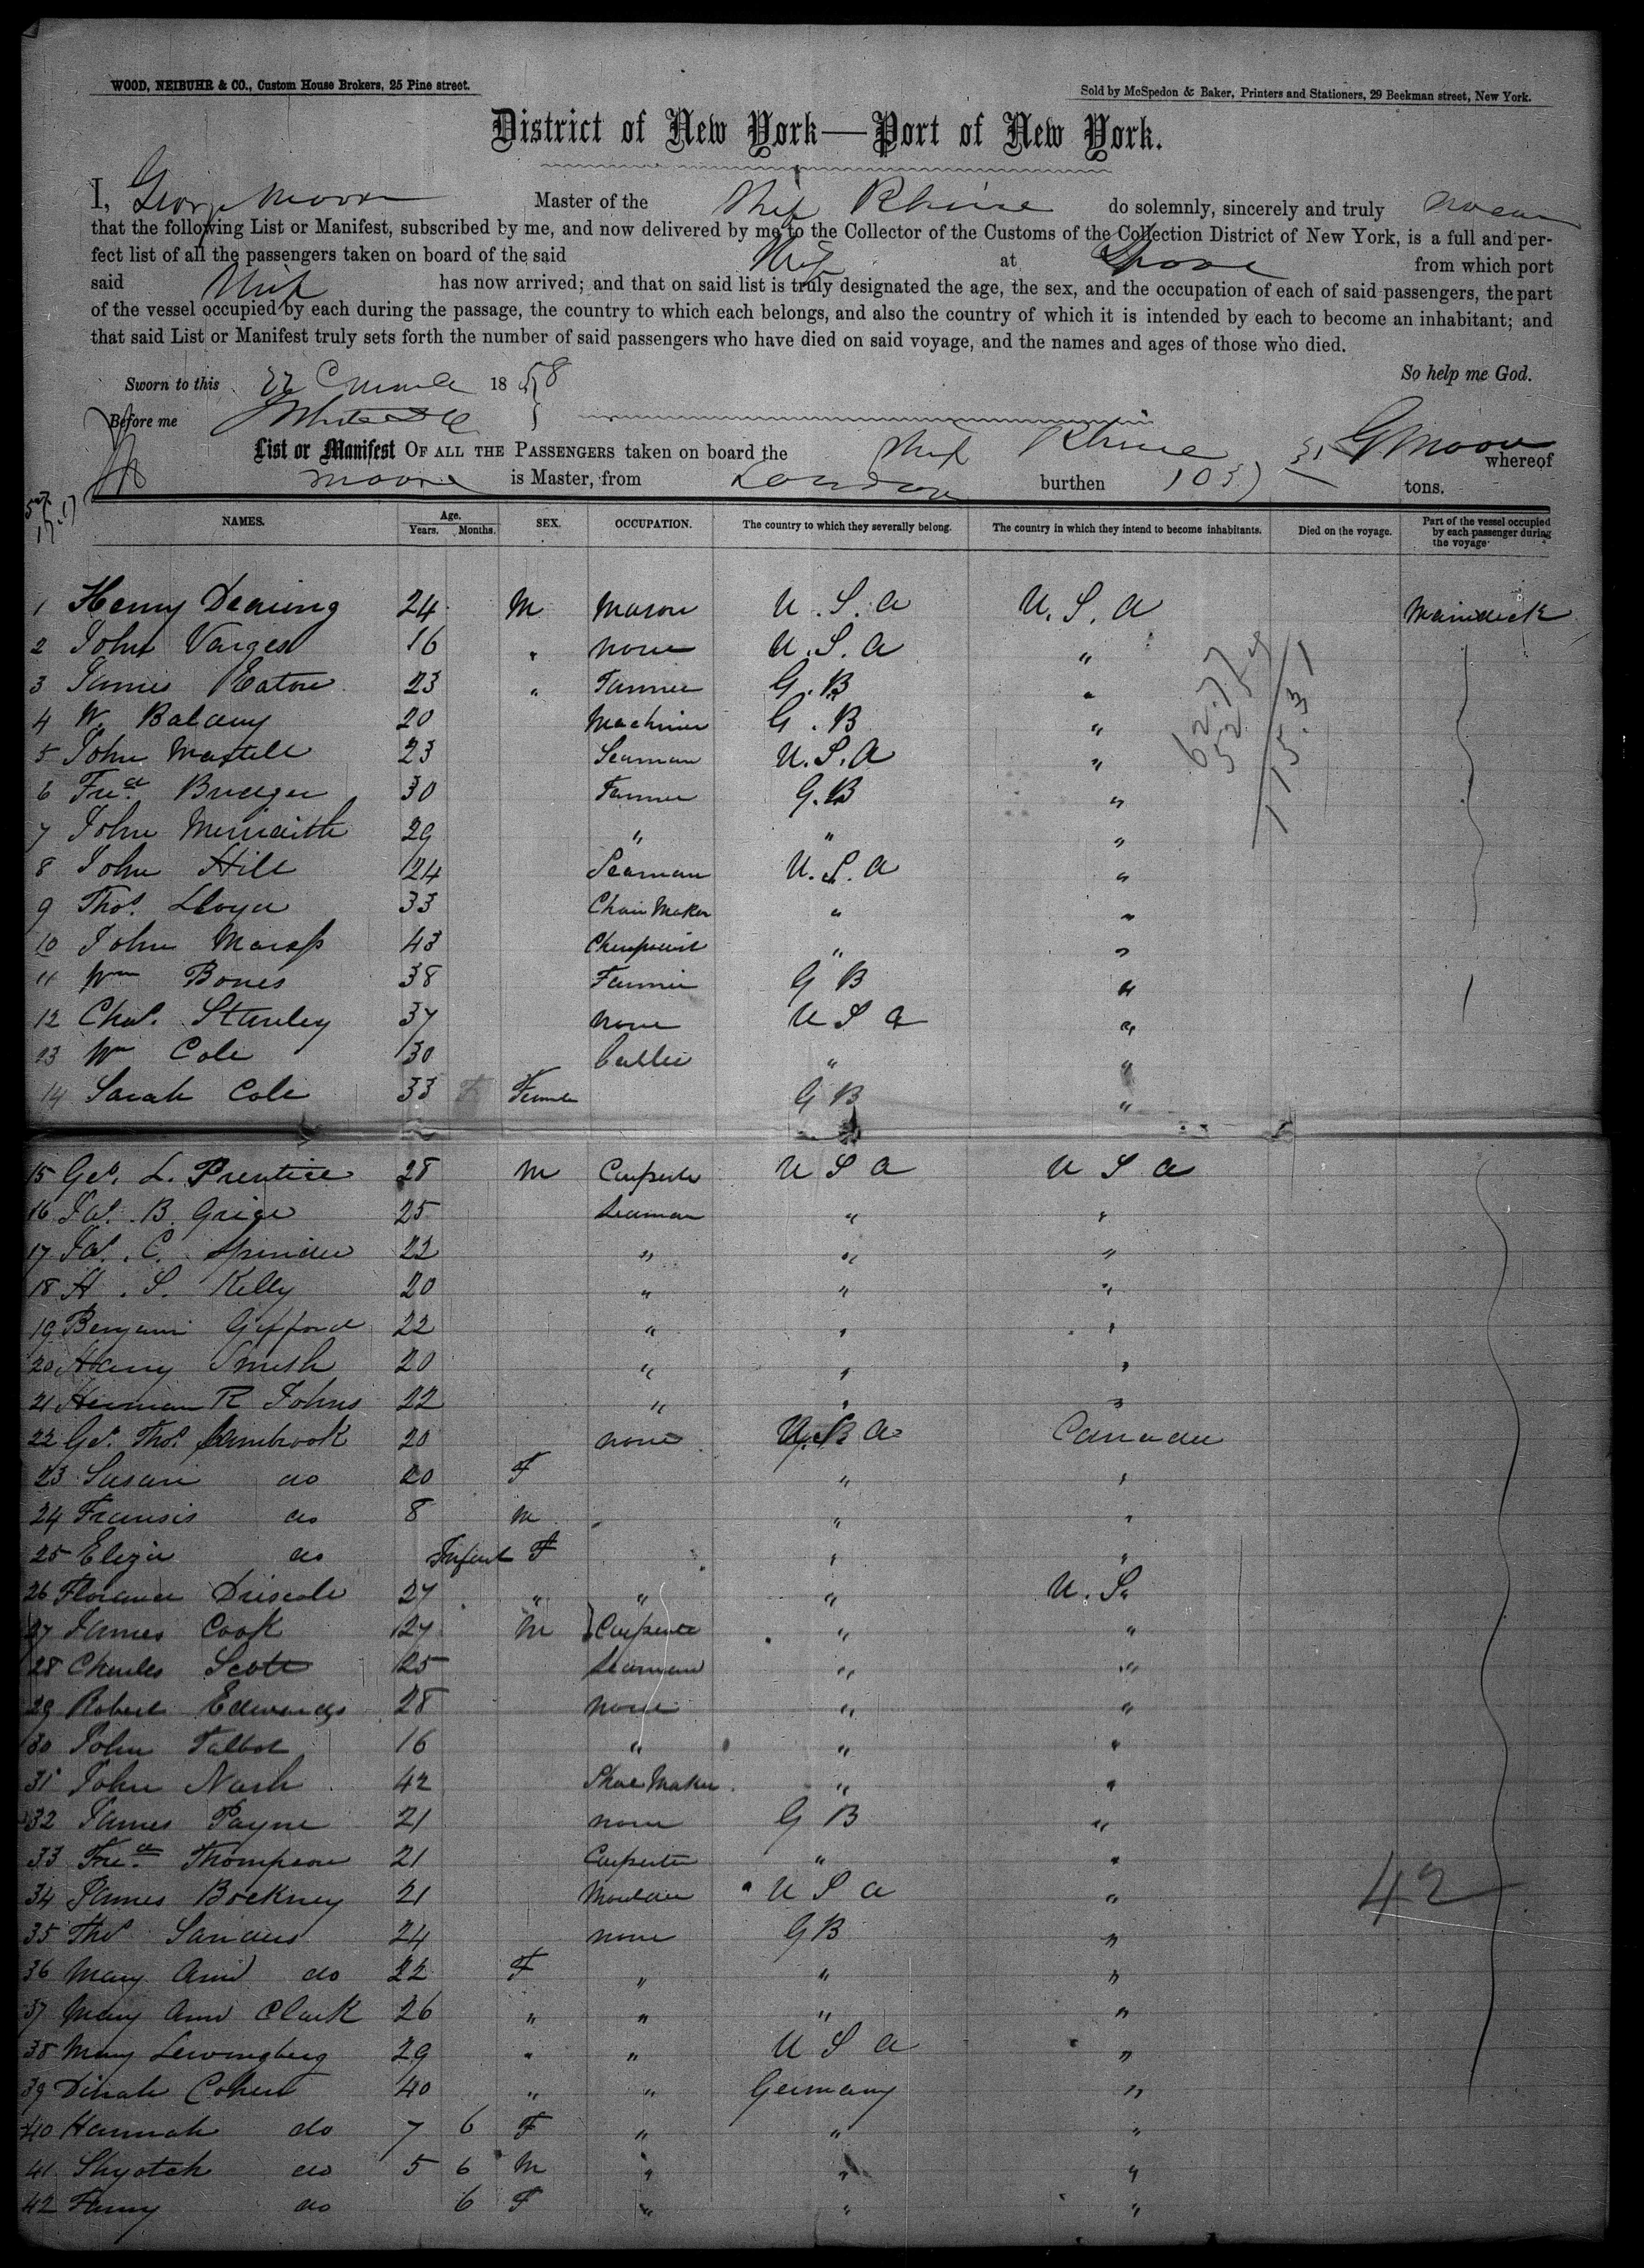 WOOD, NEIBUHR & CO., Custom House Brokers, 25 Pine street.
Sold by McSpedon & Baker, Printers and Stationers, 29 Beekman street, New York.
District of New York—Port of New York.
I, George Moore Master of the Ship Rhine do solemnly, sincerely and truly swear
that the following List or Manifest, subscribed by me, and now delivered by me to the Collector of the Customs of the Collection District of New York, is a full and per-
fect list of all the passengers taken on board of the said Ship at from which port
said Ship has now arrived; and that on said list is truly designated the age, the sex, and the occupation of each of said passengers, the part
of the vessel occupied by each during the passage, the country to which each belongs, and also the country of which it is intended by each to become an inhabitant; and
that said List or Manifest truly sets forth the number of said passengers who have died on said voyage, and the names and ages of those who died.
Sworn to this 22 1858 So help me God.
Before me
G Moore
List or Manifest OF ALL THE PASSENGERS taken on board the Ship Rhine whereof
Moore is Master, from London burthen 1037 tons.
NAMES. Age. Years. Months. SEX. OCCUPATION. The country to which they severally belong. The country in which they intend to become inhabitants. Died on the voyage. Part of the vessel occupied by each passenger during the voyage
1 Henry Dearing 24 M Mason U.S.A U.S.A Maindeck
2 John Varges 16 " none U.S.A "
3 James Eaton 23 " Farmer G.B "
4 W. Balany 20 Machinis G.B "
5 John Martell 23 Seaman U.S.A "
6 Fred Bridger 30 Farmer G.B "
7 John 29 " " "
8 John Hill 24 Seaman U.S.A "
9 Thos. Lloyd 33 Chair Maker " "
10 John 43 " "
11 Wm Bones 38 Farmer G B "
12 Chas. Stanley 37 none U S A "
13 Wm Cole 30 " "
14 Sarah Cole 33 Female G B "
15 Geo. L. Prentice 28 M Carpenter U S A U S A
16 Jas. B. 25 Seaman " "
17 Jas. C. 22 " " "
18 H. S. Kelly 20 " " "
19 Benjamin Gifford 22 " " "
20 Harry Smith 20 " " "
21 Herman R Johns 22 " " "
22 Geo. Thos. Sambrook 20 none Canada
23 Susan do 20 F " "
24 Fransis do 8 M " "
25 Eliza do Infant F " "
26 Florance Driscole 27 " " " U.S.
27 James Cook 27 M Carpenter " "
28 Charles Scott 25 Seaman " "
29 Robert Edwards 28 none " "
30 John Talbot 16 " " "
31 John Nash 42 Shoe Maker " "
32 James Payne 21 none G B "
33 Fred Thompson 21 Carpenter " "
34 James Bockney 21 Moulder U S A "
35 Thos Sanders 24 none G B "
36 Mary Ann do 22 F " " "
37 Mary Ann Clark 26 " " " "
38 Mary Lewingberg 29 " " U S A "
39 Dinah Cohen 40 " " Germany "
40 Hannah do 7 6 F " " "
41 Shyotch do 5 6 M " " "
42 Fanny do 6 F " " "
42